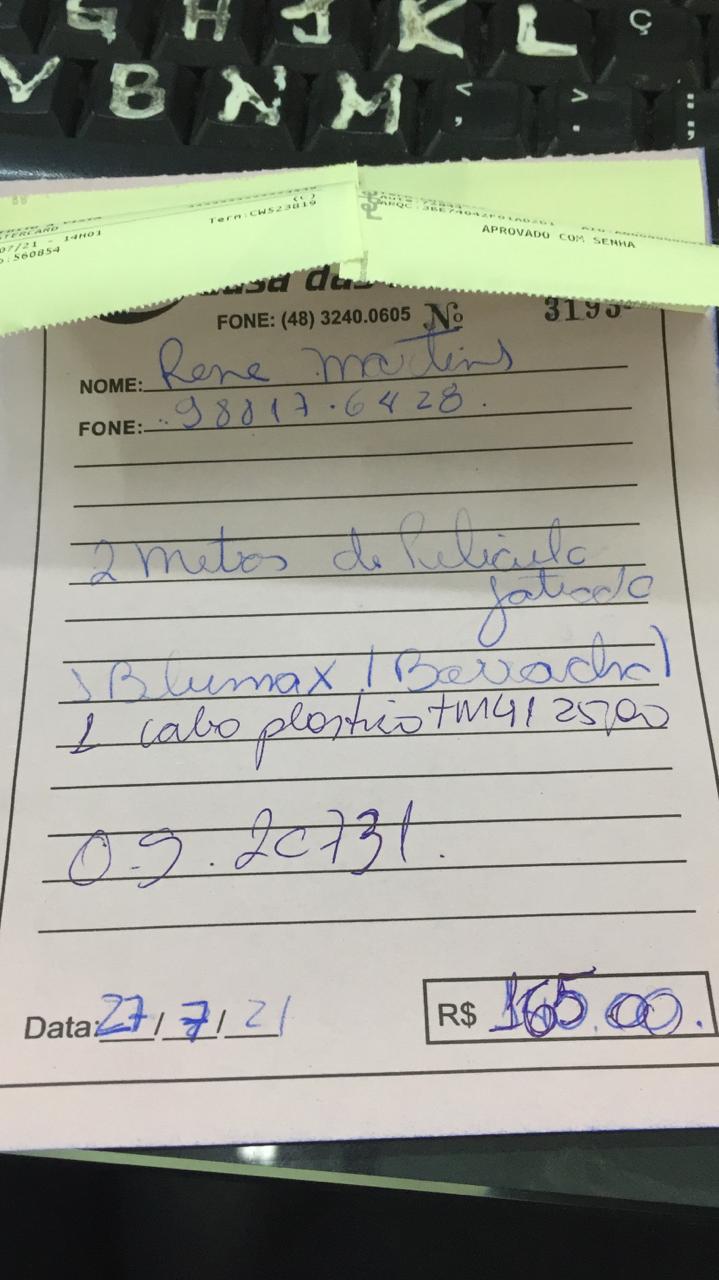 G H J K L Ç
V B N M < , > . : ;
TERCARD
07/21 - 14H01
:560854
(C)
Term:CW523819
APROVADO COM SENHA
FONE: (48) 3240.0605 No 3195
NOME: Rene Martins
FONE: 98817.6428.
2 Metros de Pelicula
Jateada
1 Blumax (Borracha)
1 cabo plastico + M41 25,00
O.S. 2C731.
Data: 27/7/21
R$ 165.00.